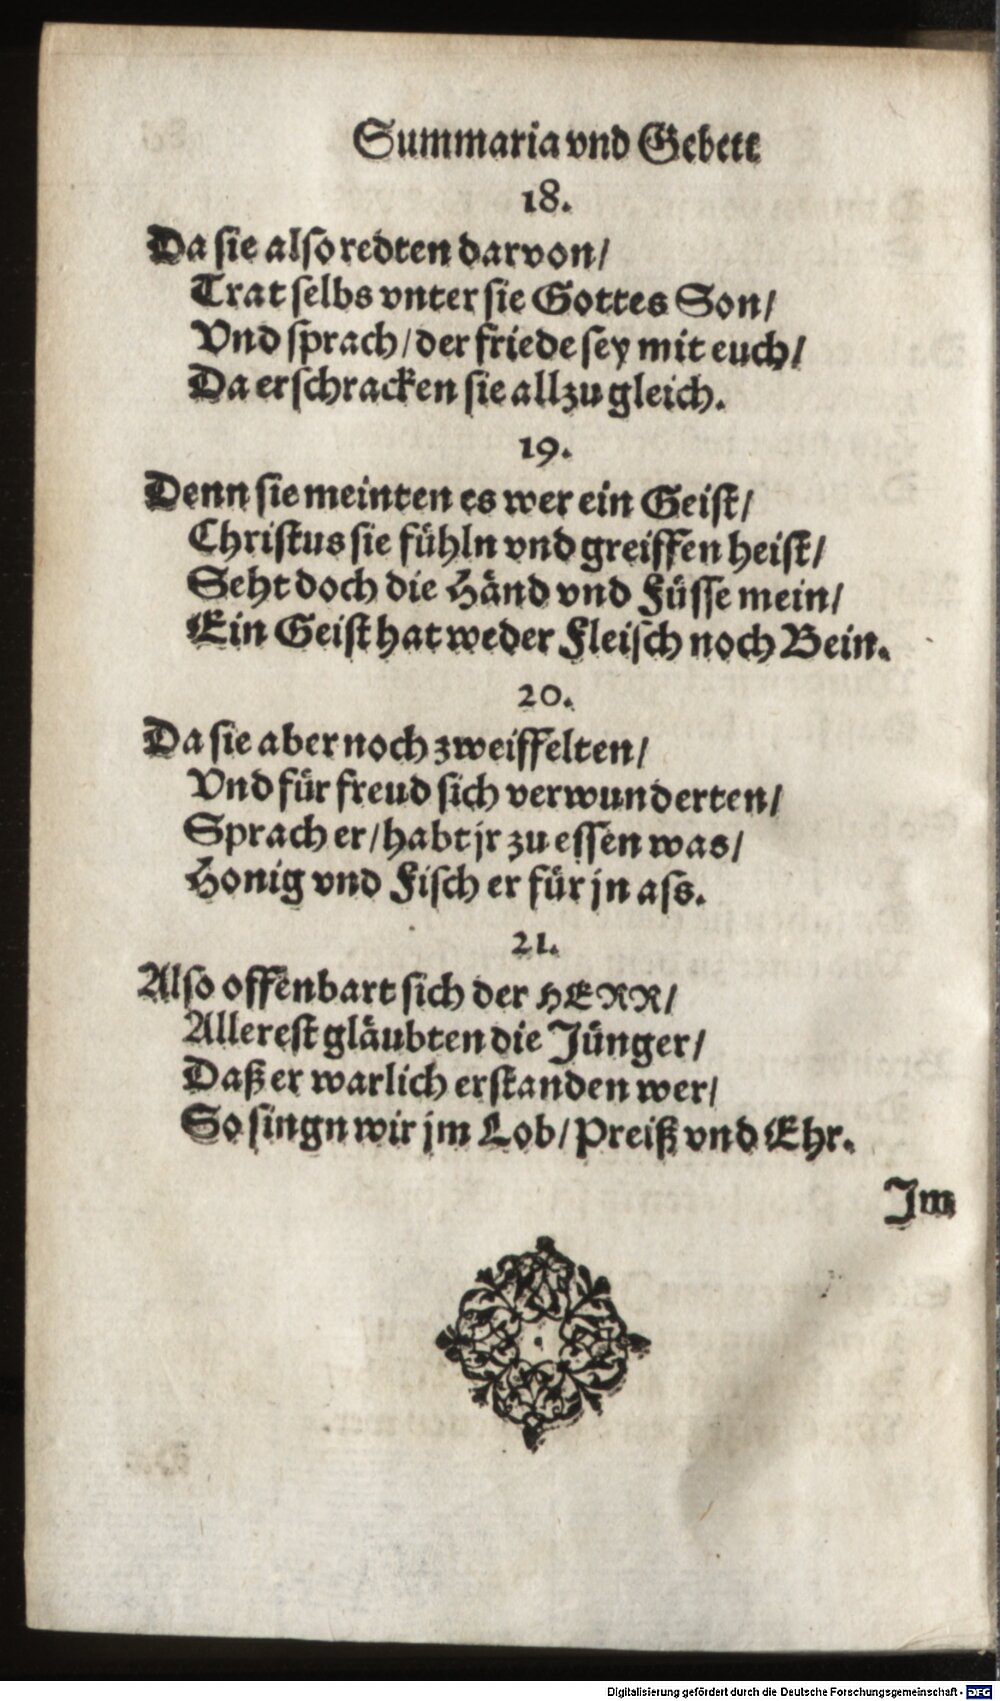 Summaria vnd Gebett
18.
Da sie also redten darvon/
Trat selbs vnter sie Gottes Son/
Vnd sprach/ der friede sey mit euch/
Da erschracken sie allzu gleich.
19.
Denn sie meinten es wer ein Geist/
Christus sie fühln vnd greiffen heist/
Seht doch die Händ vnd Füsse mein/
Ein Geist hat weder Fleisch noch Bein.
20.
Da sie aber noch zweiffelten/
Vnd für freud sich verwunderten/
Sprach er/ habt jr zu essen was/
Honig vnd Fisch er für jn ass.
21.
Also offenbart sich der HERR/
Allerest gläubten die Jünger/
Daß er warlich erstanden wer/
So singn wir jm Lob/ Preiß vnd Ehr.
Im
Digitalisierung gefördert durch die Deutsche Forschungsgemeinschaft - DFG